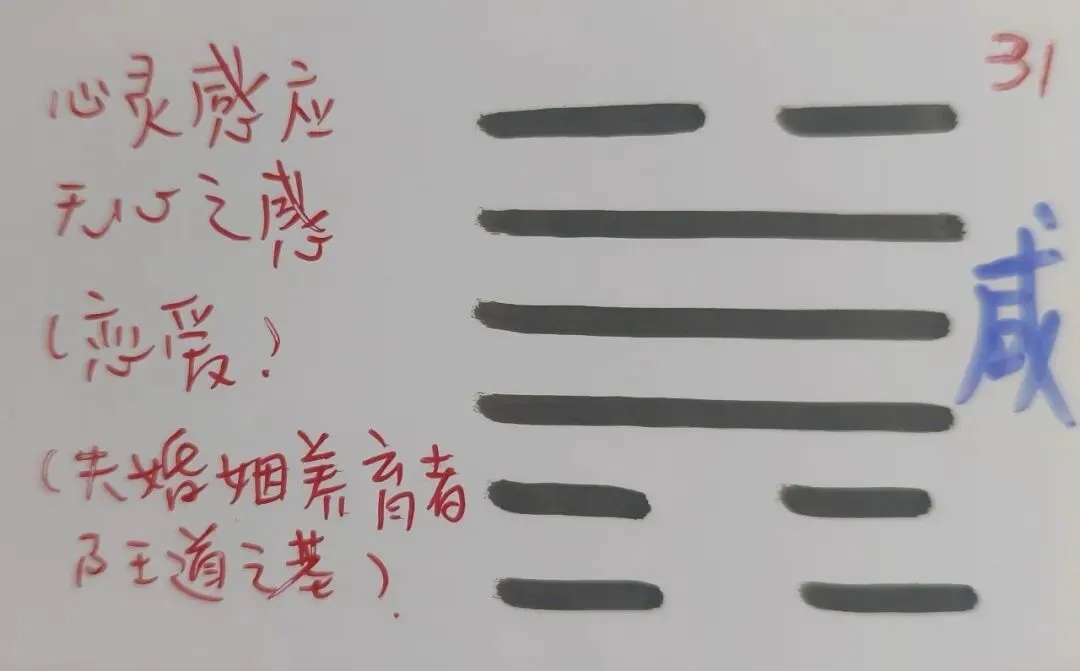 心灵感应
无心之感
(恋爱)
(夫婚姻养育者
乃王道之基).
31
咸